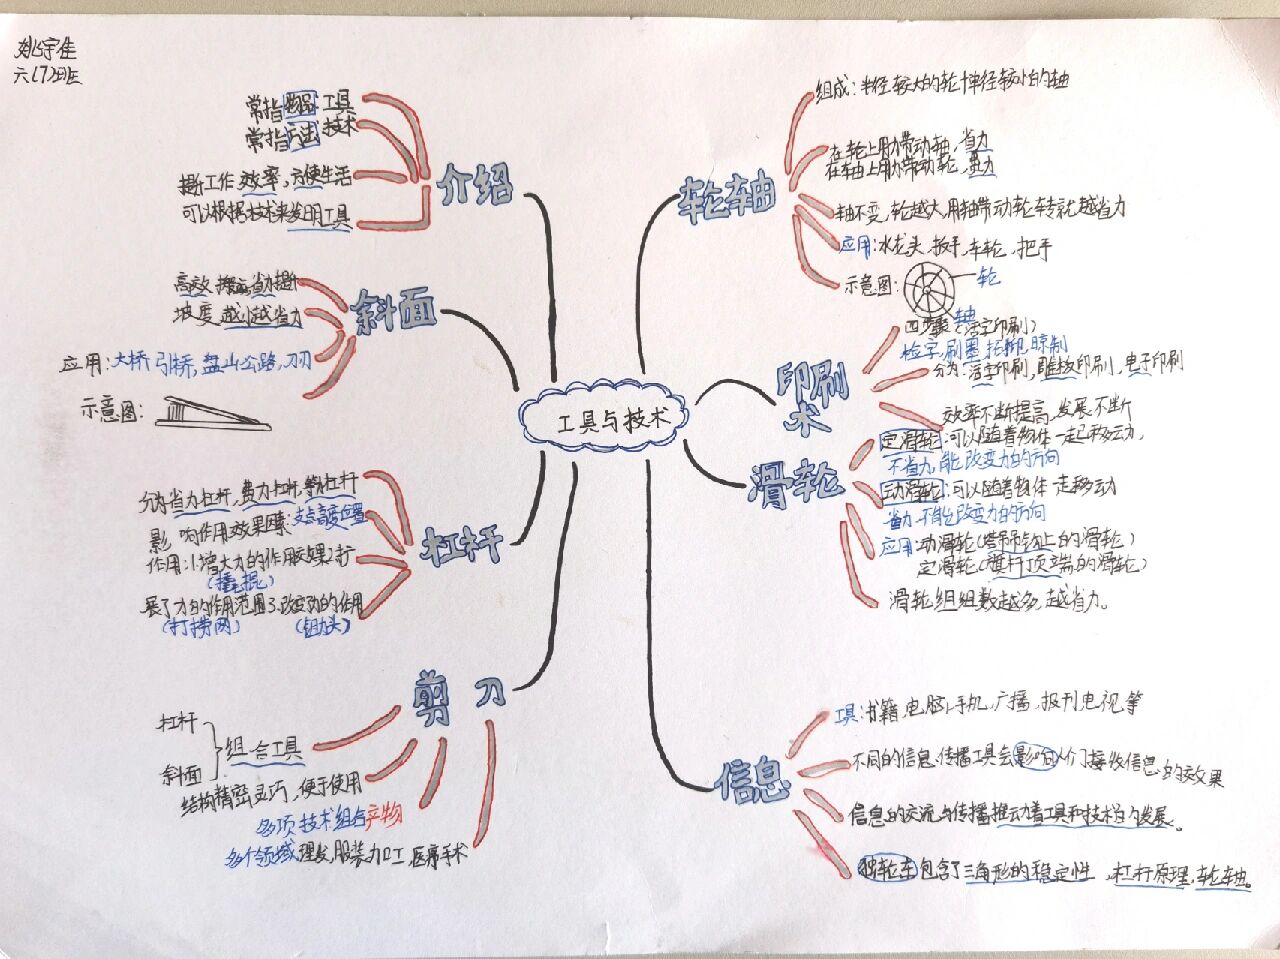 姚宇佳
六(7)班
工具与技术
介绍
常指物品 工具
常指方法 技术
提升工作效率,方便生活
可以根据技术来发明工具
斜面
高效 提高 省力 提升
坡度越小越省力
应用:大桥引桥,盘山公路,刀刃
示意图:
杠杆
分为省力杠杆,费力杠杆,等臂杠杆
影响作用效果因素:支点高度位置
作用:1.增大力的作用效果2.扩
(撬棍)
展了力的作用范围3.改变力的作用
(打捞网) (锄头)
剪刀
杠杆
斜面
组合工具
结构精密灵巧,便于使用
多项技术组合产物
多个领域 理发,服装加工,医疗手术
轮车轴
组成:半径较大的轮和半径较小的轴
在轮上用力带动轴,省力
在轴上用力带动轮,费力
轴不变,轮越大,用轴带动轮转就越省力
应用:水龙头,扳手,车轮,把手
示意图:
轮
轴
印刷术
四步骤(活字印刷)
检字,刷墨,托印,晾制
分为:活字印刷,雕板印刷,电子印刷
效率不断提高,发展不断
滑轮
定滑轮:可以随着物体一起移动,
不省力,能改变力的方向
动滑轮:可以随着物体一起移动
省力 不能改变力的方向
应用:动滑轮(塔吊吊钩上的滑轮)
定滑轮(旗杆顶端的滑轮)
滑轮组组数越多,越省力。
信息
工具:书籍,电脑,手机,广播,报刊电视等
不同的信息传播工具会影响人们接收信息的效果
信息的交流与传播推动着工具和技术的发展。
独轮车包含了三角形的稳定性,杠杆原理,轮车轴。